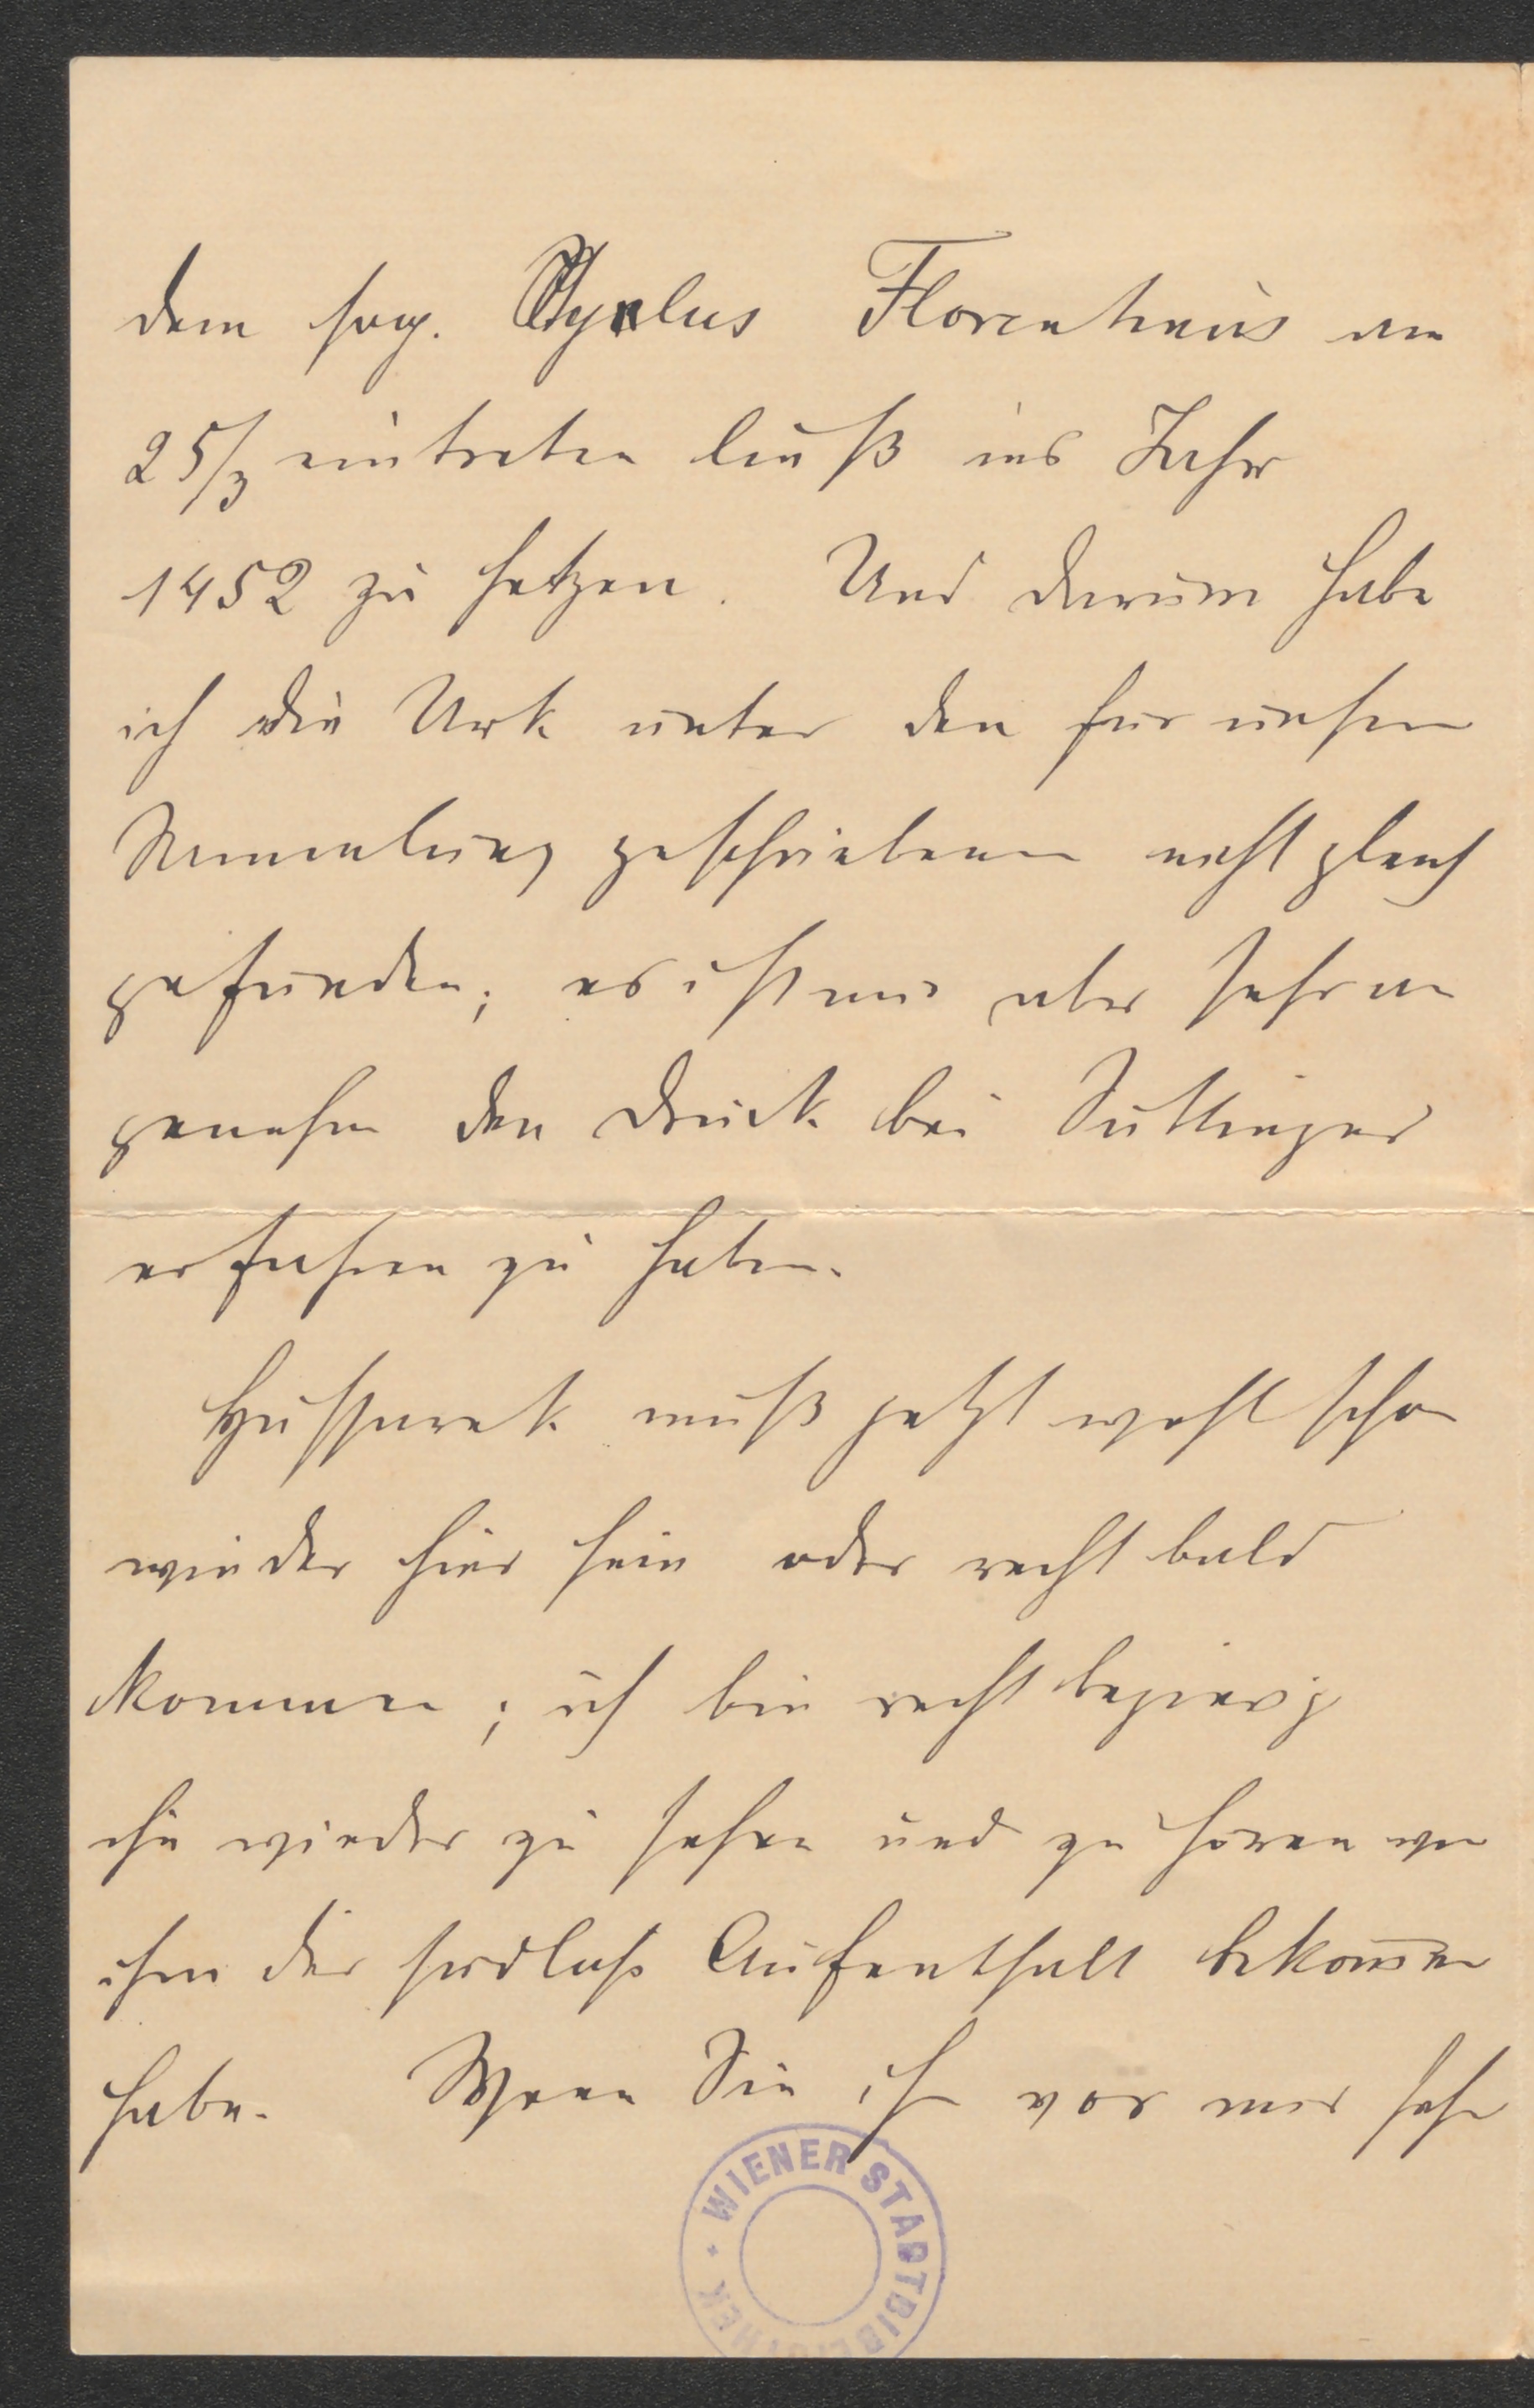 dem sog. Cyclus Florentinus am
25/3 eintreten läuft ins Jahr
1452 zu setzen. Und darum habe
ich die Urk. unter den für unsere
Sammlung geschriebenen nicht gleich
gefunden; es ist mir aber sehr an
genehm den Druck bei Suttinger
erfahren zu haben.
Hussarek muß jetzt wohl schon
wieder hier sein oder recht bald
kommen; ich bin recht begierig
ihn wieder zu sehen und zu hören wie
ihm der südliche Aufenthalt bekom̄en
habe. Wenn Sie ihn vor mir sehen
WIENER STADTBIBLIOTHEK